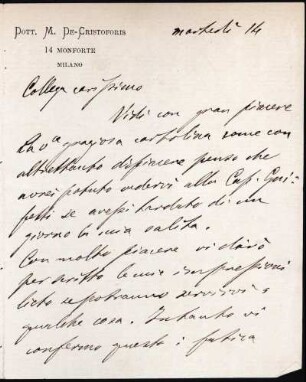 DOTT. M. DE-CRISTOFORIS
14 MONFORTE
MILANO
martedì 14
Collega carissimo
Vidi con gran piacere
la va graziosa cartolina come con
altrettanto dispiacere penso che
avrei potuto vedervi alla Cap.
se avessi tardato di un
giorno la mia salita.
Con molto piacere vi darò
per iscritto le mie impressioni
lieto se potranno servirvi a
qualche cosa. Intanto vi
confermo questo: fatica